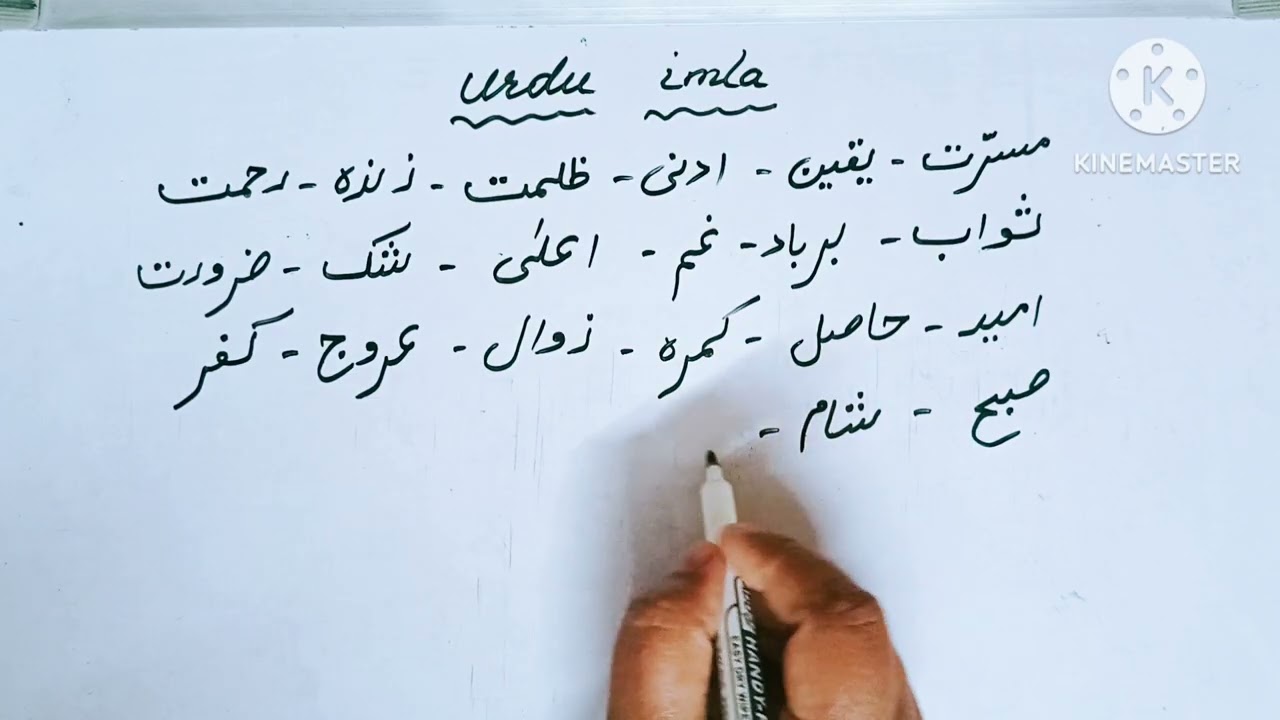 urdu imla
KINEMASTER
مسرّت - یقین - ادنیٰ - ظلمت - زندہ - رحمت
ثواب - برباد - غم - اعلیٰ - شک - ضرورت
امید - حاصل - کمرہ - زوال - عروج - کفر
صبح - شام -